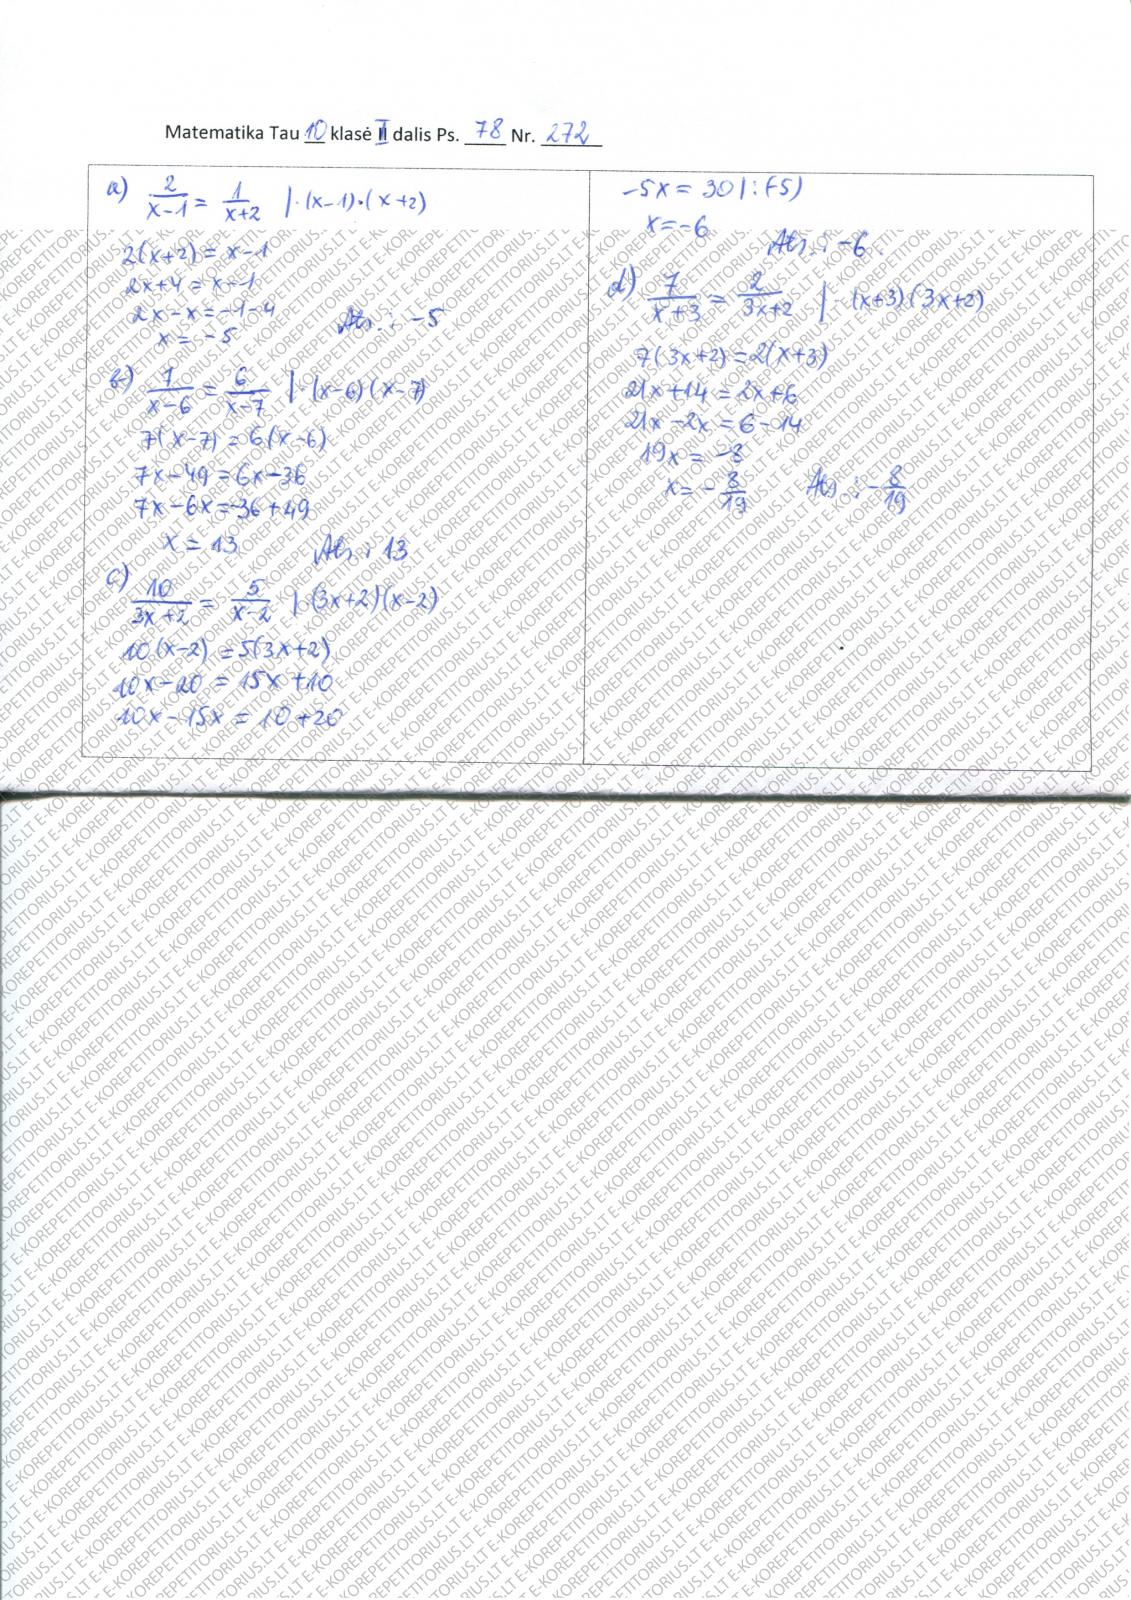 Matematika Tau 10 klasė II dalis Ps. 78 Nr. 272
a) 2/(x-1) = 1/(x+2) |·(x-1)·(x+2)
2(x+2) = x-1
2x+4 = x-1
2x-x = -1-4
x = -5
Ats.: -5
b) 1/(x-6) = 6/(x-7) |·(x-6)(x-7)
7(x-7) = 6(x-6)
7x-49 = 6x-36
7x-6x = -36+49
x = 13
Ats.: 13
c) 10/(3x+2) = 5/(x-2) |·(3x+2)(x-2)
10(x-2) = 5(3x+2)
10x-20 = 15x+10
10x-15x = 10+20
-5x = 30 |:(-5)
x = -6
Ats.: -6
d) 7/(x+3) = 2/(3x+2) |·(x+3)(3x+2)
7(3x+2) = 2(x+3)
21x+14 = 2x+6
21x-2x = 6-14
19x = -8
x = -8/19
Ats.: -8/19
E-KOREPETITORIUS.LT